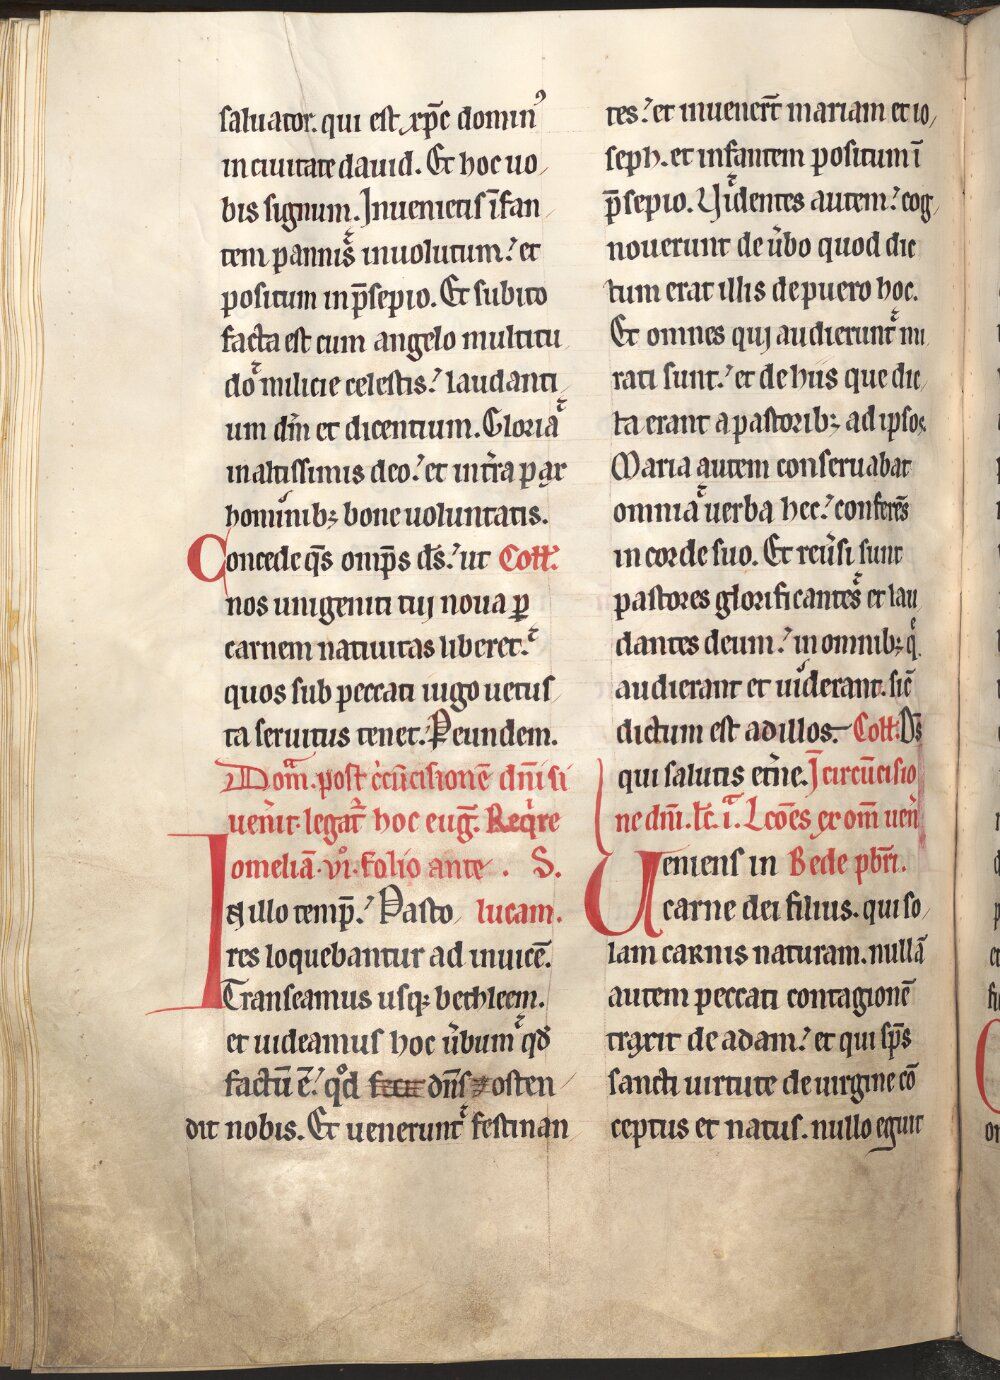 saluator. qui est xp̄c domin⁹
in ciuitate dauid. Et hoc uo
bis signum. Inuenietis īfan
tem pannis inuolutum. et
positum in p̄sepio. Et subito
facta est cum angelo multitu
do milicie celestis. laudanti
um dm̄ et dicentium. Gloria
in altissimis deo. et in tr̄a pax
hominibꝫ bone uoluntatis.
Concede qs̄ omp̄s ds̄. ut Coll̄.
nos unigeniti tuj noua ꝑ
carnem natiuitas liberet.
quos sub peccati iugo uetus
ta seruitus tenet. P eundem.
Dom̄. post c̄cūcisionē dn̄i si
uen̄it legat̄ hoc euḡ. Reqͥre
omeliā. vı̊. folio ante. S.
In illo temp̄. Pasto lucam.
res loquebantur ad inuicē.
Transeamus usqꝫ bethleem.
et uideamus hoc ūbum qd̄
factū ē. qd̊ dn̄s osten
dit nobis. Et uenerunt festinan
tes. et inuener̄t mariam et io
seph. et infantem positum ī
p̄sepio. Uidentes autem. cog
nouerunt de ūbo quod dic
tum erat illis de puero hoc.
Et omnes quj audierunt mi
rati sunt. et de hiis que dic
ta erant a pastoribꝫ ad ipsos.
Maria autem conseruabat
omnia uerba hec. conferēs
in corde suo. Et reūsi sunt
pastores glorificantes et lau
dantes deum. in omnibꝫ q̄
audierant et uiderant. sic̄
dictum est ad illos. Coll̄. Ds̄
qui salutis et̄ne. J̄ circūcisio
ne dn̄i. lc̄. i.ᵃ Lcōes ex om̄ uen̄
Ueniens in Bede pbr̄i.
carne dei filius. qui so
lam carnis naturam. nullā
autem peccati contagionē
traxit de adam. et qui sp̄s
sancti uirtute de uirgine cō
ceptus et natus. nullo eguit